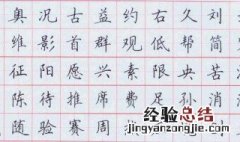 奥况古益约右久刘
维影首群观低帮简
征阳愿兴素限央苦
陈待推席费足孙消
随验赛周
经验总结
jingyanzongjie.com